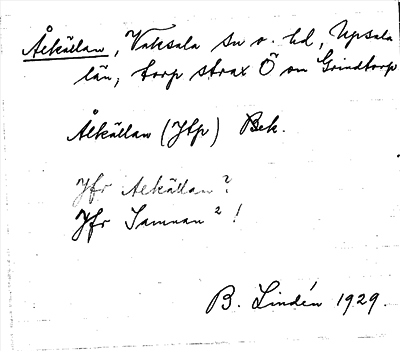 Ålkällan, Vaksala sn o. hd, Upsala
län, torp strax Ö om Grindtorp
Ålkällan (Jtp) Bek.
Jfr Alkällan?
Jfr Samnan² !
B. Lindén 1929.